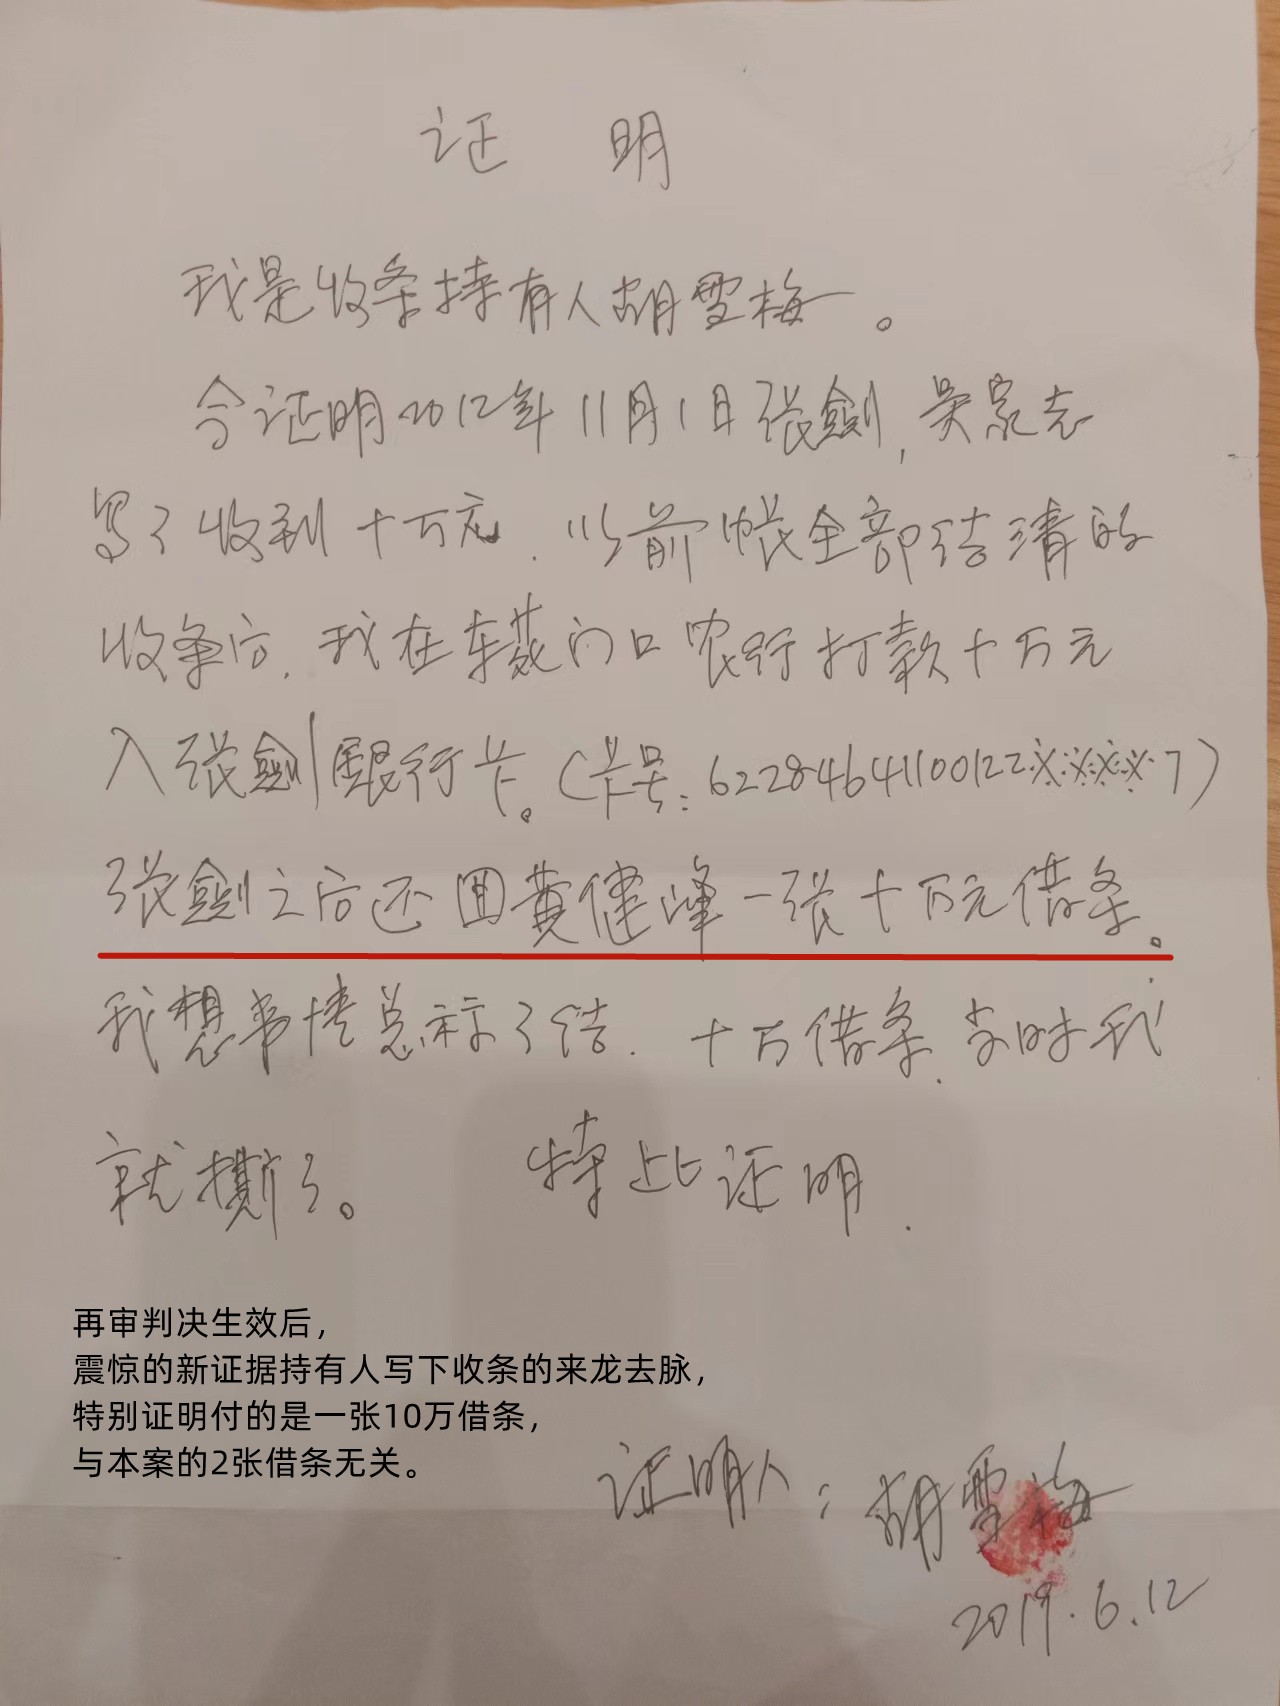 证 明
我是收条持有人胡雪梅。
今证明2012年11月1日张劍,吴家志
写了收到十万元.以前帐全部结清的
收条后.我在车裝门口农行打款十万元
入张劍银行卡。(卡号:62284641100122※※※※7)
张劍之后还回黄健峰一张十万元借条。
我想事情总标了结.十万借条.当时我
就撕了。 特此证明.
再审判决生效后,
震惊的新证据持有人写下收条的来龙去脉,
特别证明付的是一张10万借条,
与本案的2张借条无关。
证明人:胡雪梅
2019.6.12